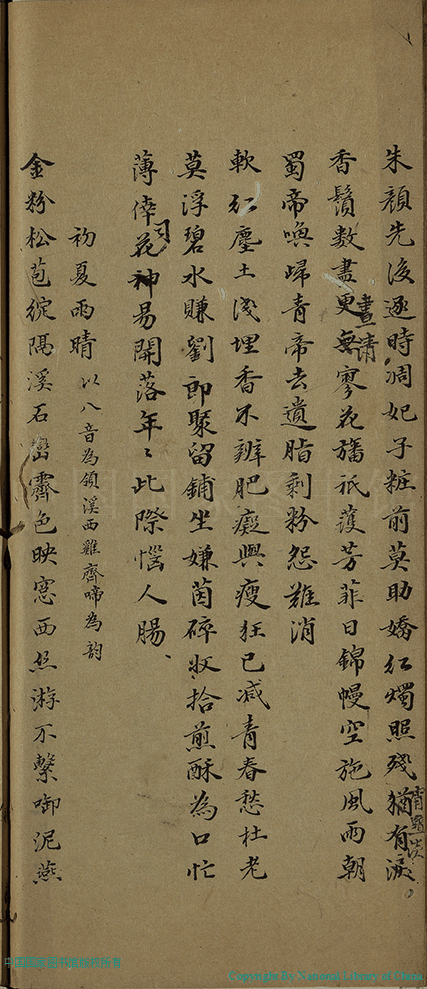 朱顏先後逐時凋妃子粧前莫助嬌紅燭照殘猶有淚
香鬚數盡更無寥花旛祇護芳菲日錦幔空施風雨朝
晝清
蜀帝喚歸青帝去遺脂剩粉怨難消
軟紅塵土淺埋香不辨肥癡與瘦狂已减青春愁杜老
莫浮碧水賺劉郎聚留鋪坐嫌茵碎収拾煎酥為口忙
薄倖司花神易開落年〻此際惱人腸
初夏雨晴 以八音為領溪西雞齊啼為韵
金粉松苞綻隔溪石巒霽色映窓西絲游不繫啣泥燕
Copyright By National Library of China